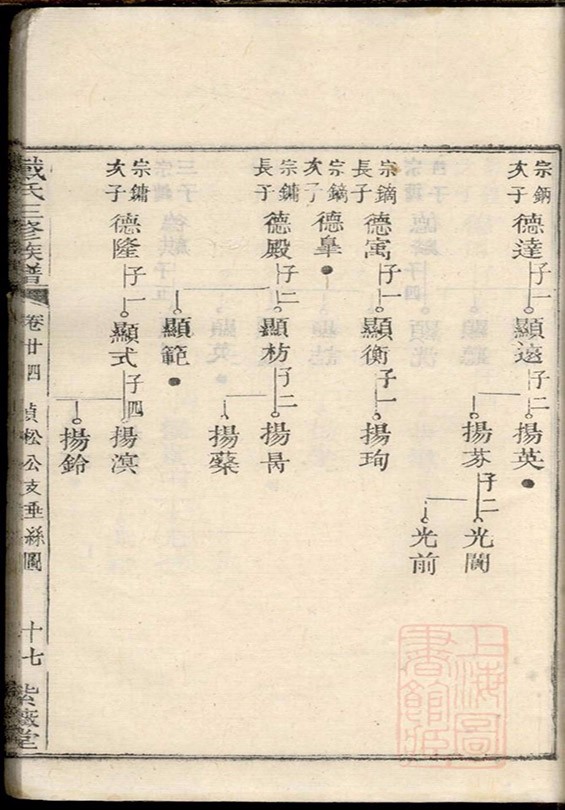 宗鈵次子
德達
子一
顯遠
子二
揚英
揚芬
子二
光闓
光前
宗鏑長子
德寓
子一
顯衡
子一
揚珣
宗鏑次子
德臯
宗鏞長子
德殿
子二
顯枋
子二
揚㫤
揚蘂
顯範
宗鏞次子
德隆
子一
顯式
子四
揚溟
揚鈴
戴氏三修族譜
卷廿四
貞松公支垂絲圖
十七
紫薇堂
上海圖書館藏